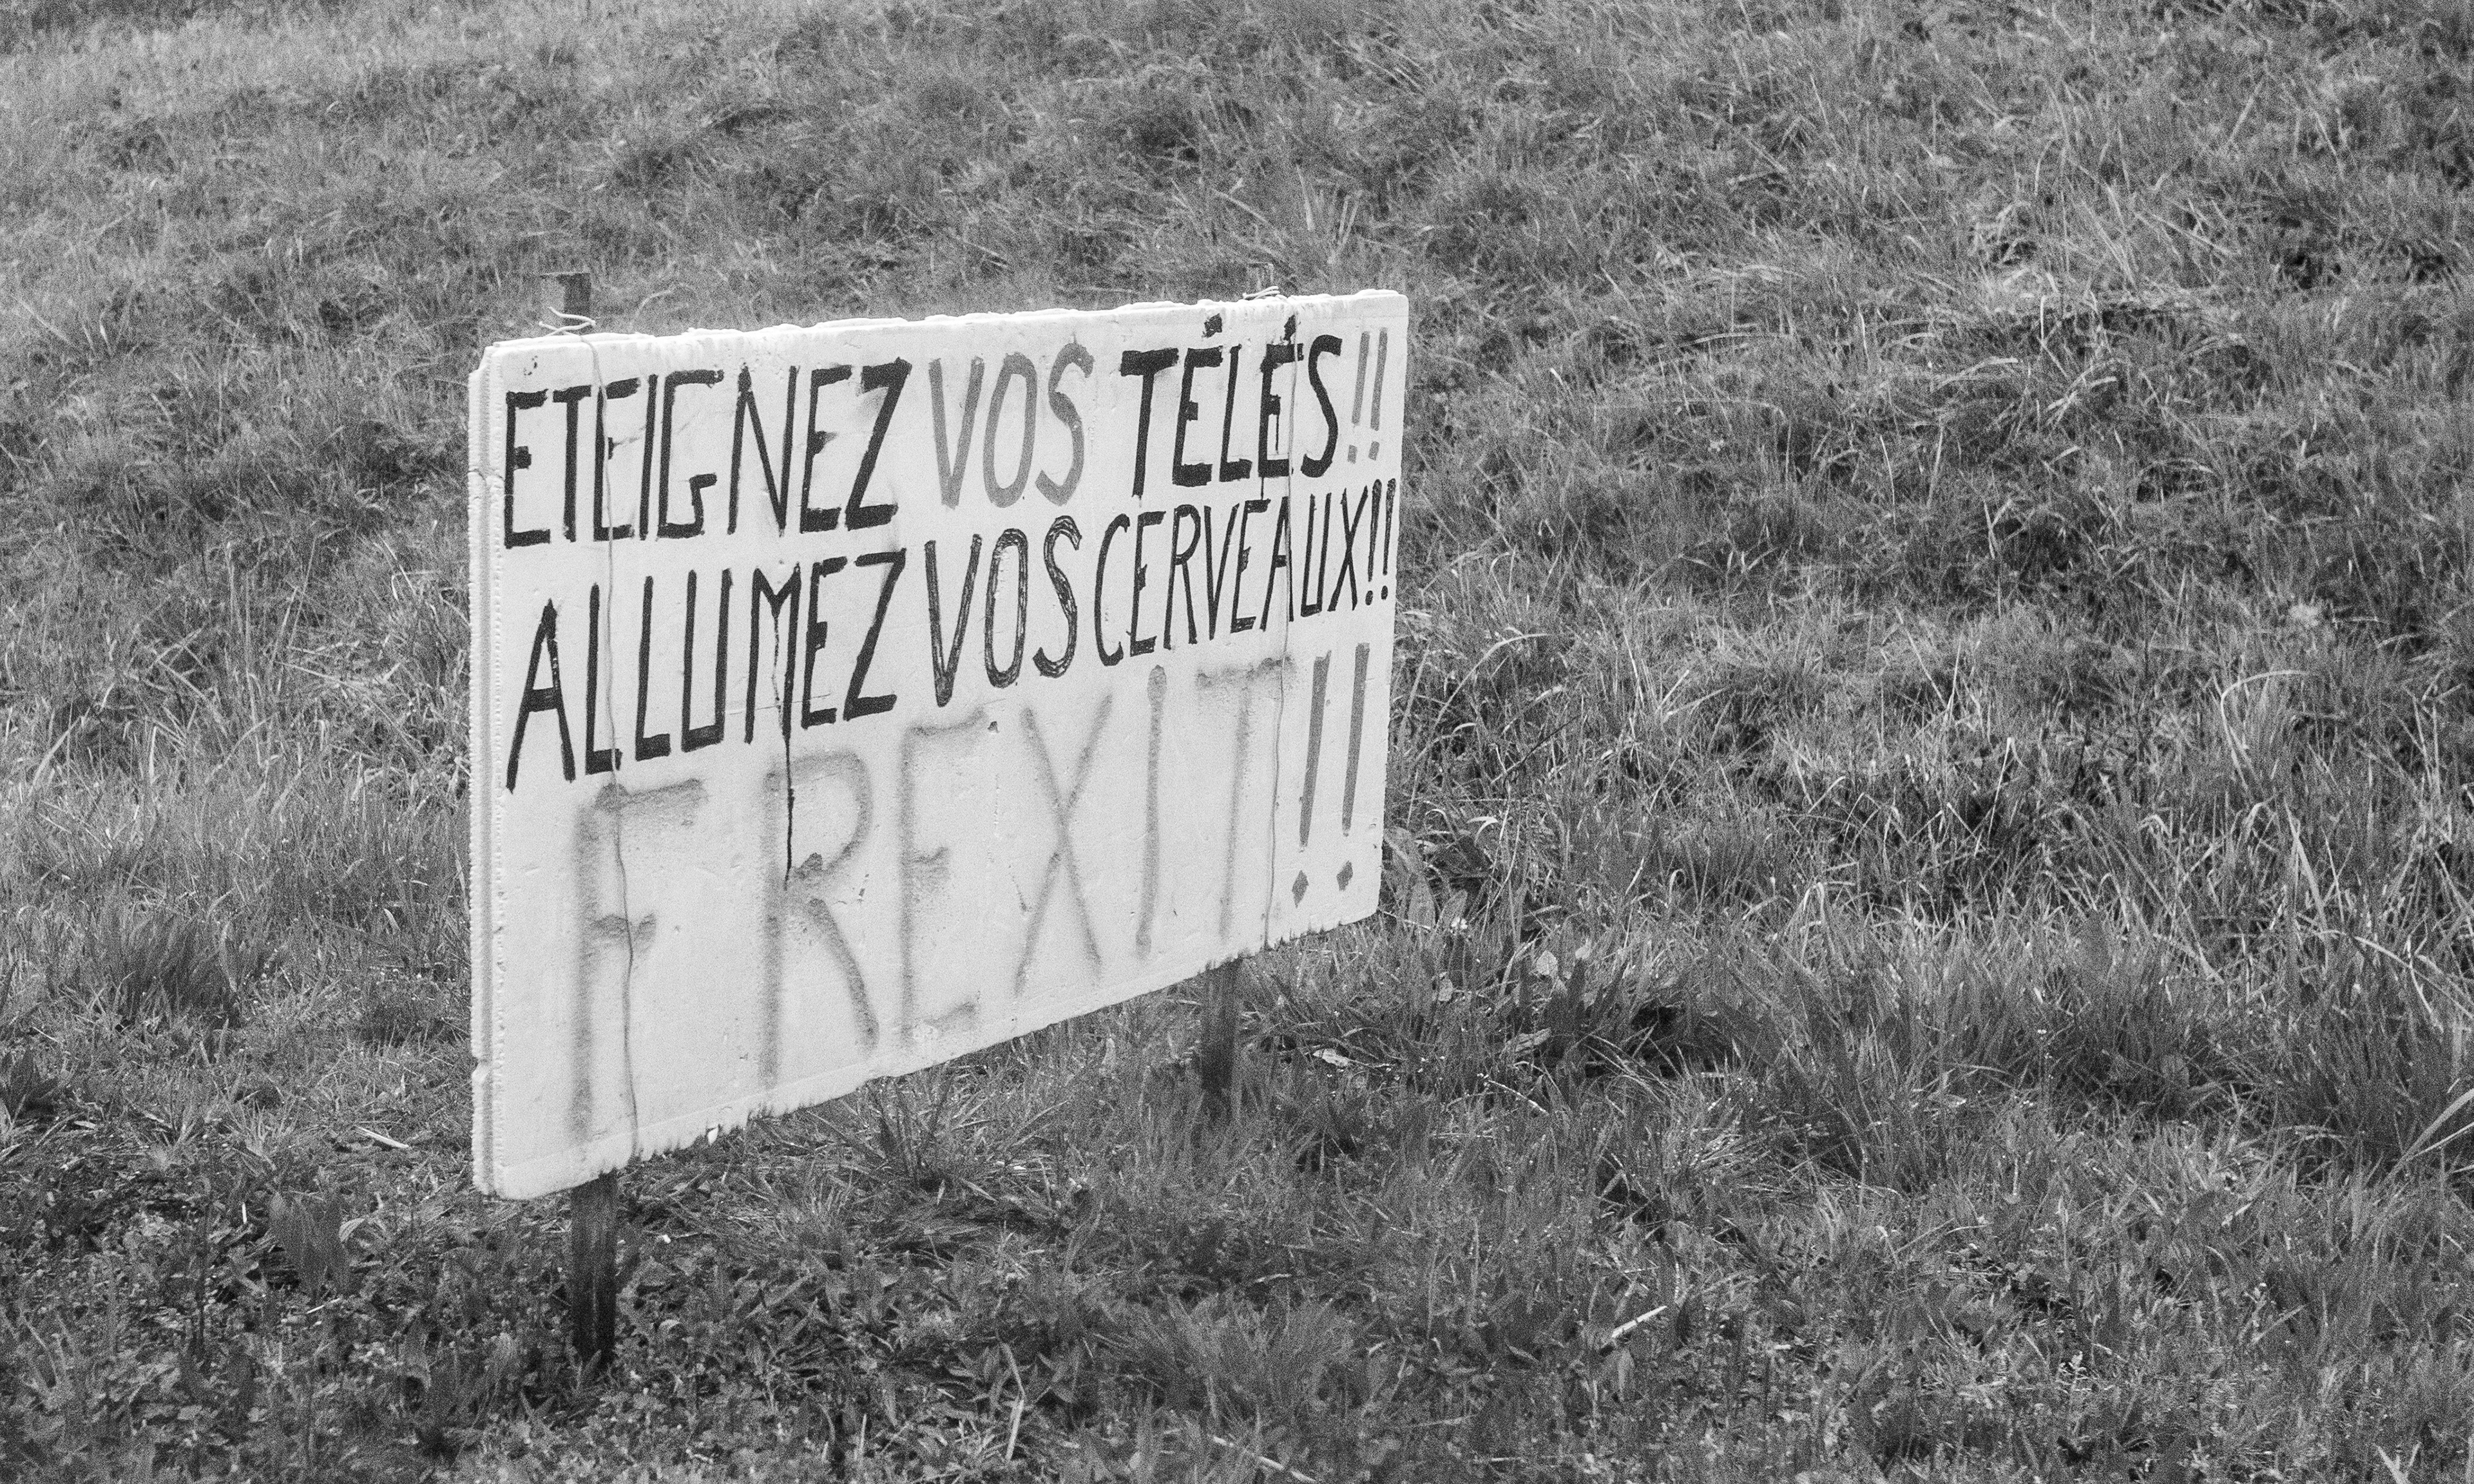 ETEIGNEZ VOS TÉLÉS!!
ALLUMEZ VOS CERVEAUX!!
FREXIT!!